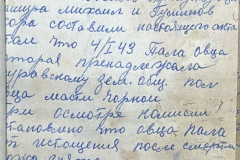 шмура Михаил и Гуминов
ора составили настоящий акт
том что 4/I 43 Пала овца
торая принадлежала
уравскому зем. общ. пол
вца масти черной
ри осмотре комисси
тановлено что овца пала
т истощения после смерти